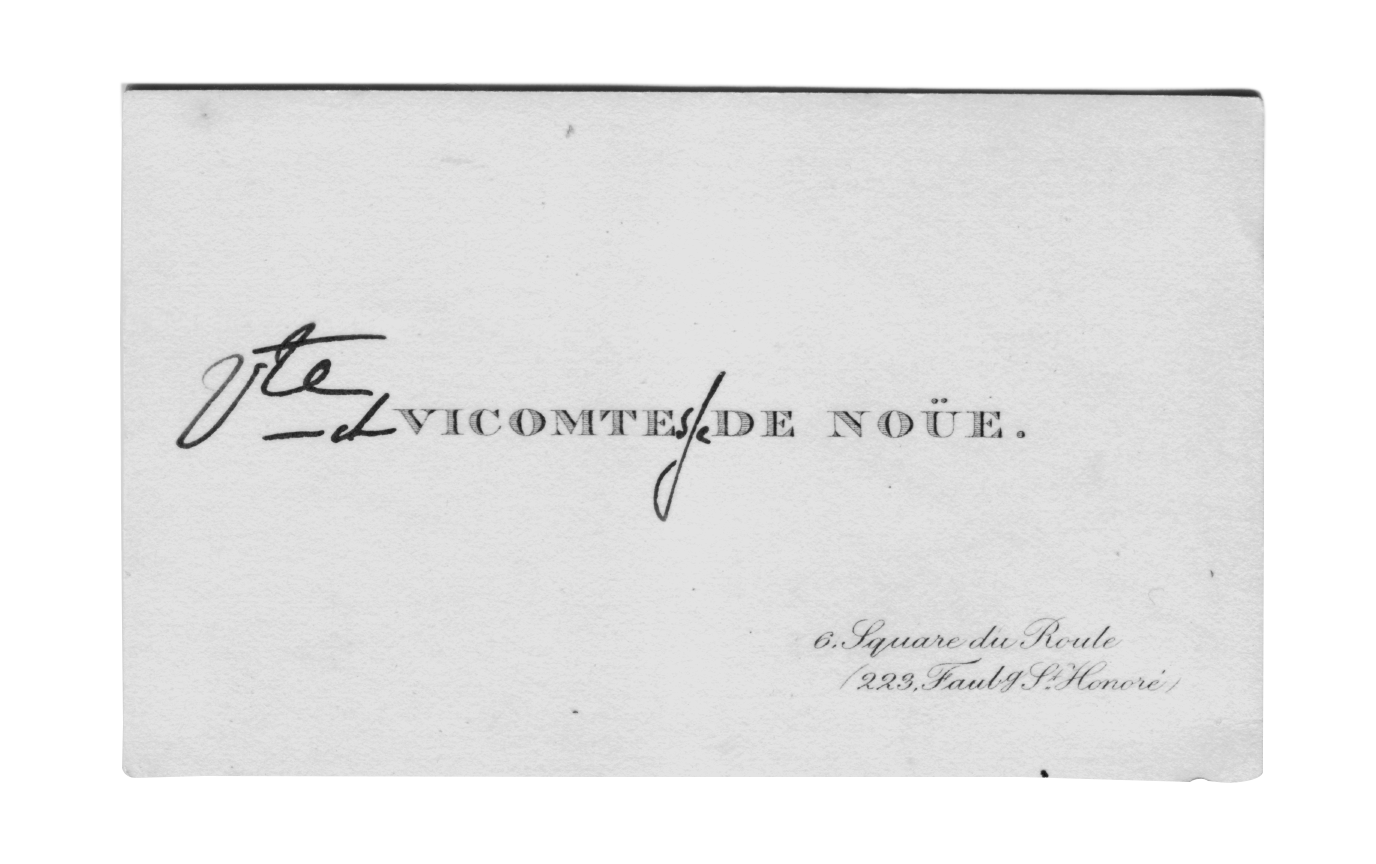 Vte et VICOMTEsse DE NOÜE.
6. Square du Roule
(223, Faubg St. Honoré)